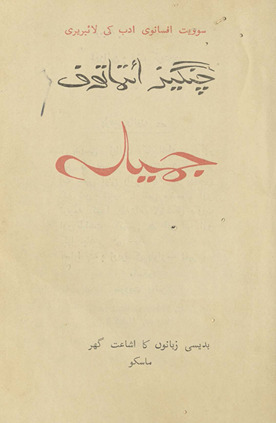 سوویت افسانوی ادب کی لائبریری
چنگیز ائتماتوف
جمیلہ
بدیسی زبانوں کا اشاعت گھر
ماسکو